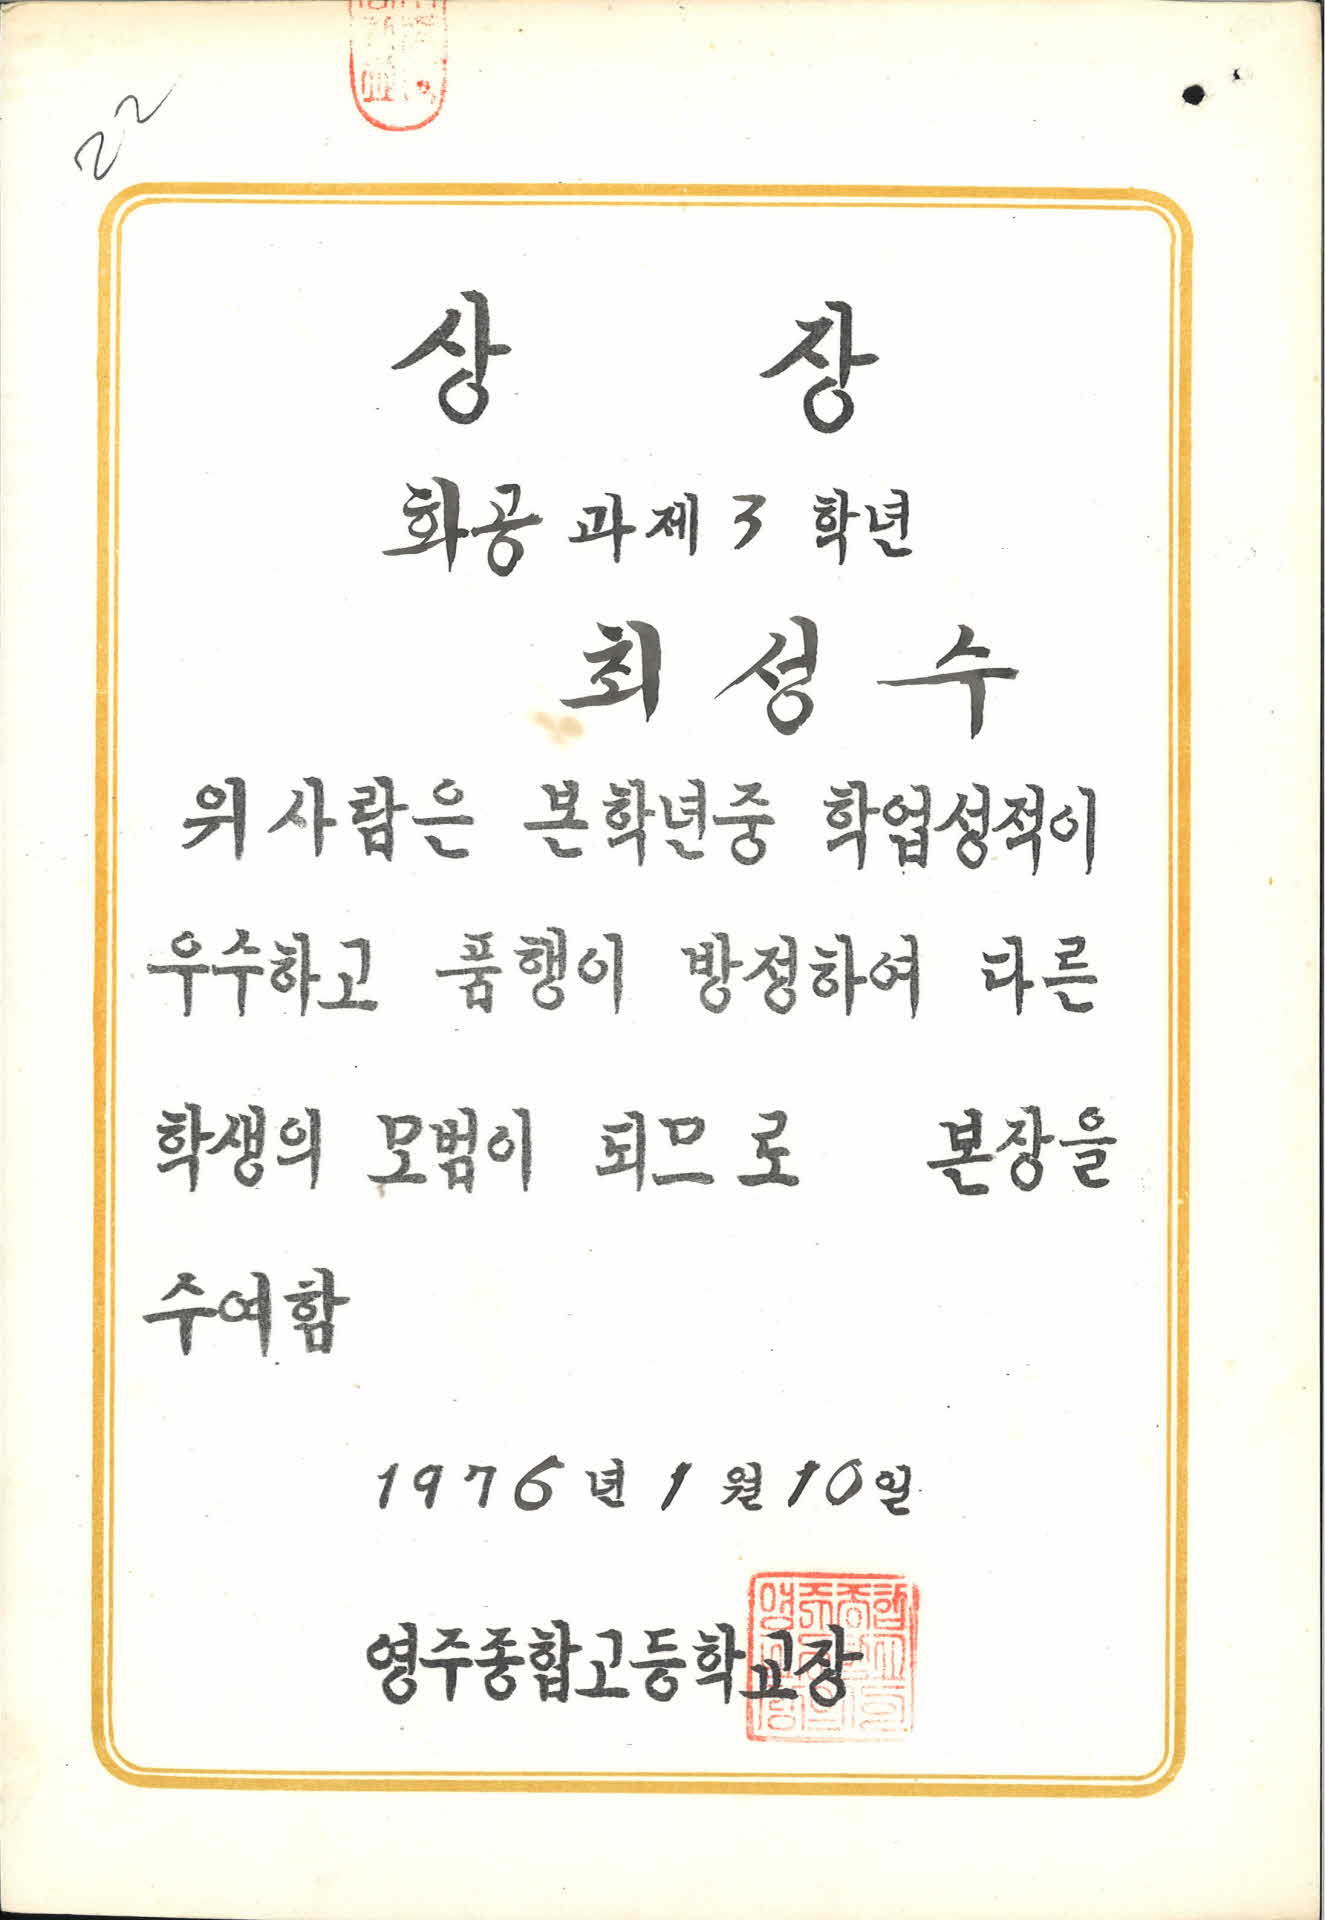 22
상 장
화공과제3학년
최성수
위 사람은 본학년중 학업성적이
우수하고 품행이 방정하여 다른
학생의 모범이 되므로 본장을
수여함
1976년 1월 10일
영주종합고등학교장